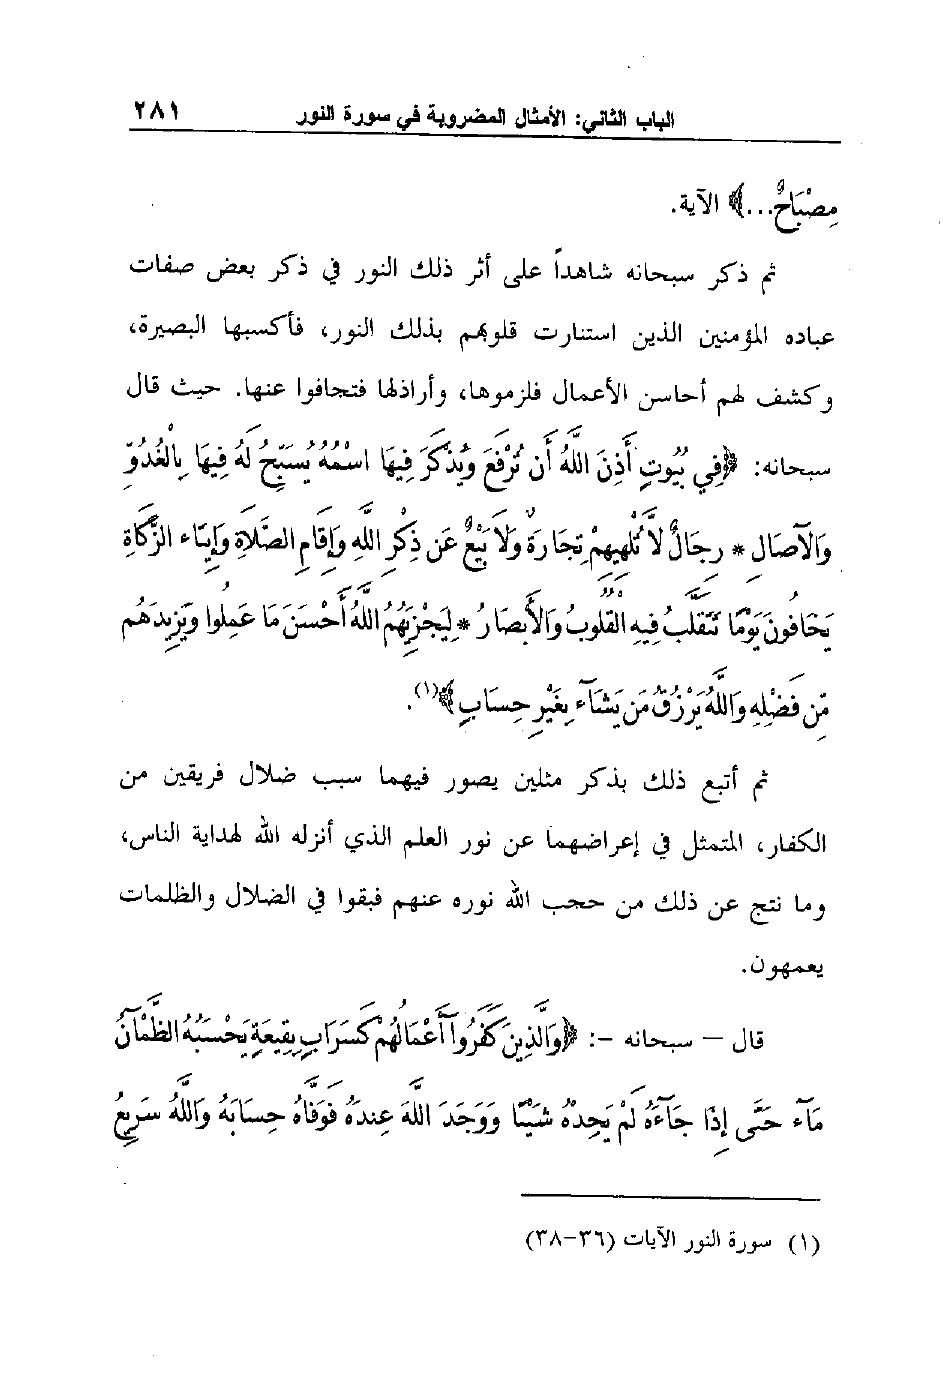 الباب الثاني: الأمثال المضروبة في سورة النور ٢٨١
مِصْبَاحٌ...﴾ الآية.
ثم ذكر سبحانه شاهداً على أثر ذلك النور في ذكر بعض صفات
عباده المؤمنين الذين استنارت قلوبهم بذلك النور، فأكسبها البصيرة،
وكشف لهم أحاسن الأعمال فلزموها، وأراذلها فتجافوا عنها. حيث قال
سبحانه: ﴿فِي بُيُوتٍ أَذِنَ اللَّهُ أَن تُرْفَعَ وَيُذْكَرَ فِيهَا اسْمُهُ يُسَبِّحُ لَهُ فِيهَا بِالْغُدُوِّ
وَالْآصَالِ * رِجَالٌ لَّا تُلْهِيهِمْ تِجَارَةٌ وَلَا بَيْعٌ عَن ذِكْرِ اللَّهِ وَإِقَامِ الصَّلَاةِ وَإِيتَاءِ الزَّكَاةِ
يَخَافُونَ يَوْمًا تَتَقَلَّبُ فِيهِ الْقُلُوبُ وَالْأَبْصَارُ * لِيَجْزِيَهُمُ اللَّهُ أَحْسَنَ مَا عَمِلُوا وَيَزِيدَهُم
مِّن فَضْلِهِ وَاللَّهُ يَرْزُقُ مَن يَشَآءُ بِغَيْرِ حِسَابٍ﴾(١).
ثم أتبع ذلك بذكر مثلين يصور فيهما سبب ضلال فريقين من
الكفار، المتمثل في إعراضهما عن نور العلم الذي أنزله الله لهداية الناس،
وما نتج عن ذلك من حجب الله نوره عنهم فبقوا في الضلال والظلمات
يعمهون.
قال – سبحانه –: ﴿وَالَّذِينَ كَفَرُوٓا أَعْمَالُهُمْ كَسَرَابٍ بِقِيعَةٍ يَحْسَبُهُ الظَّمْآنُ
مَآءً حَتَّى إِذَا جَآءَهُ لَمْ يَجِدْهُ شَيْئًا وَوَجَدَ اللَّهَ عِندَهُ فَوَفَّاهُ حِسَابَهُ وَاللَّهُ سَرِيعُ
(١) سورة النور الآيات (٣٦-٣٨)